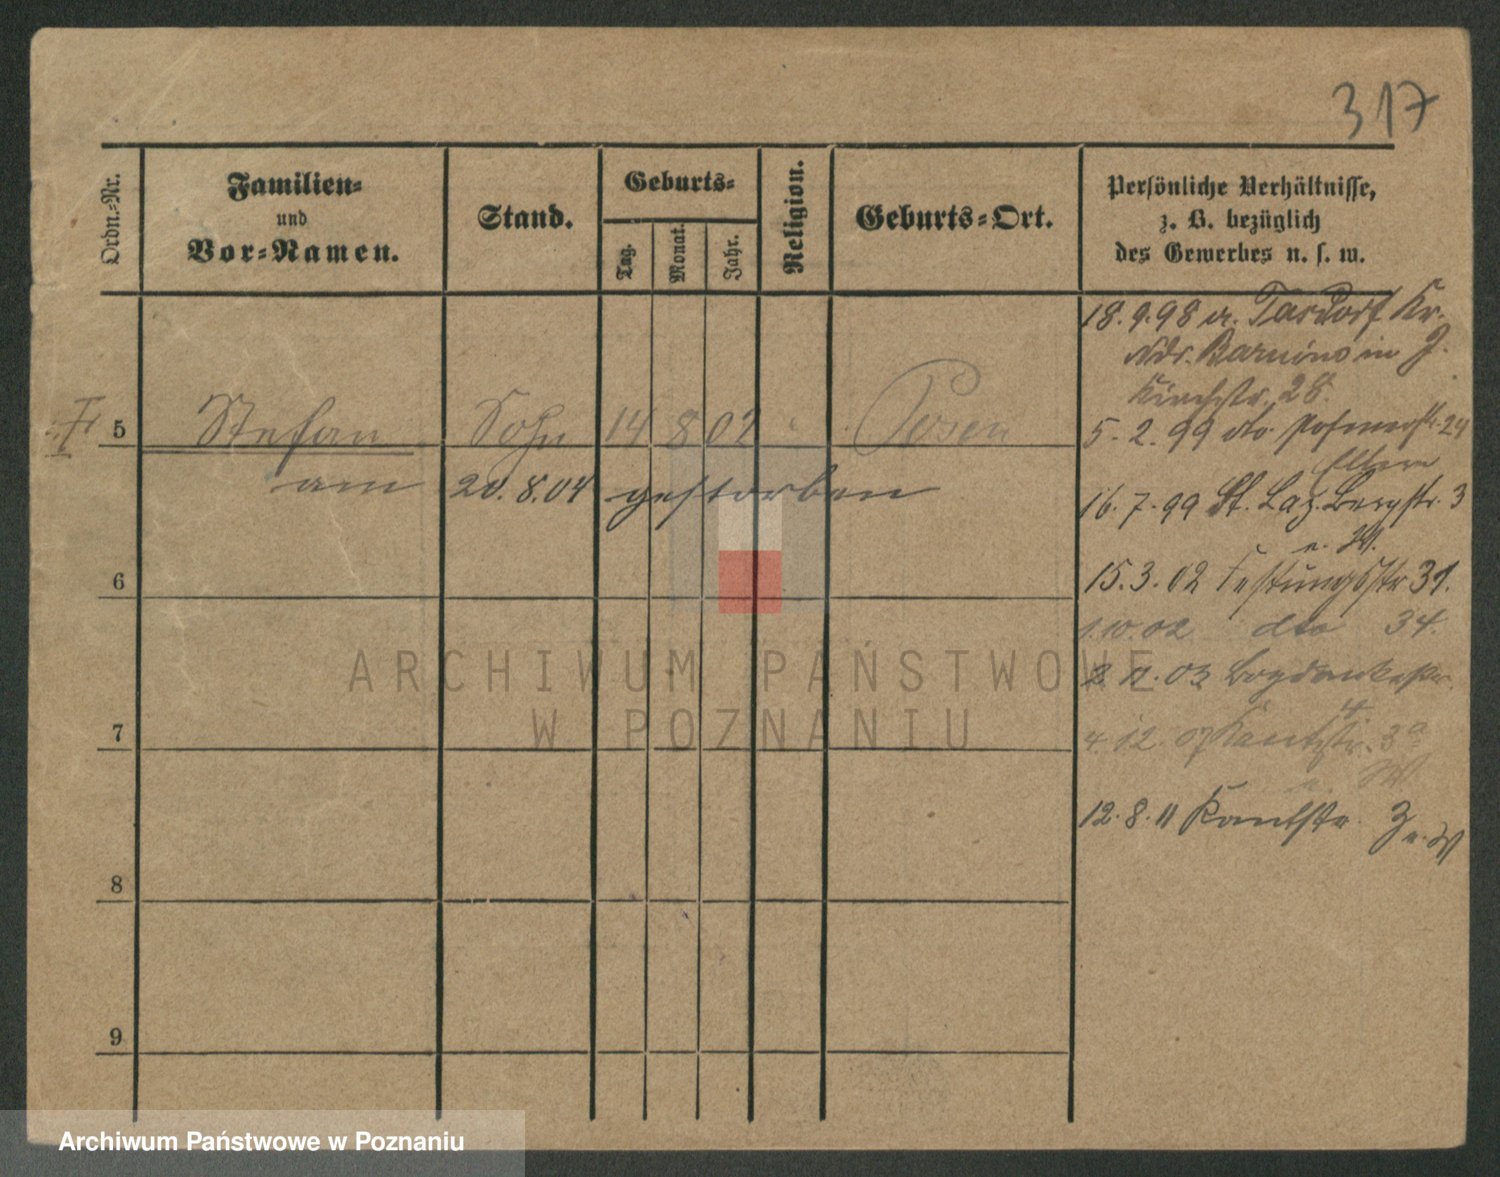 317
Ordn.-Nr.
Familien-
und
Vor-Namen.
Stand.
Geburts-
Tag.
Monat.
Jahr.
Religion.
Geburts-Ort.
Persönliche Verhältnisse,
z. B. bezüglich
des Gewerbes u. s. w.
18.9.98 a. Tasdorf Kr.
Ndr. Barnim in J.
Kirchstr. 28.
5 Stefan Sohn 14 8 02 Posen
5.2.99 dto 24
Eltern
am 20.8.04 gestorben
16.7.99 St. Laz. Bergstr. 3
n. W.
6
15.3.02 Festungsstr 31.
1.10.02 dto 34.
03 Bogdankastr.
4
7
4.12.07 Kantstr. 3a
n. W.
12.8.11 Kantstr. 3 n. W
8
9
ARCHIWUM PAŃSTWOWE
W POZNANIU
Archiwum Państwowe w Poznaniu